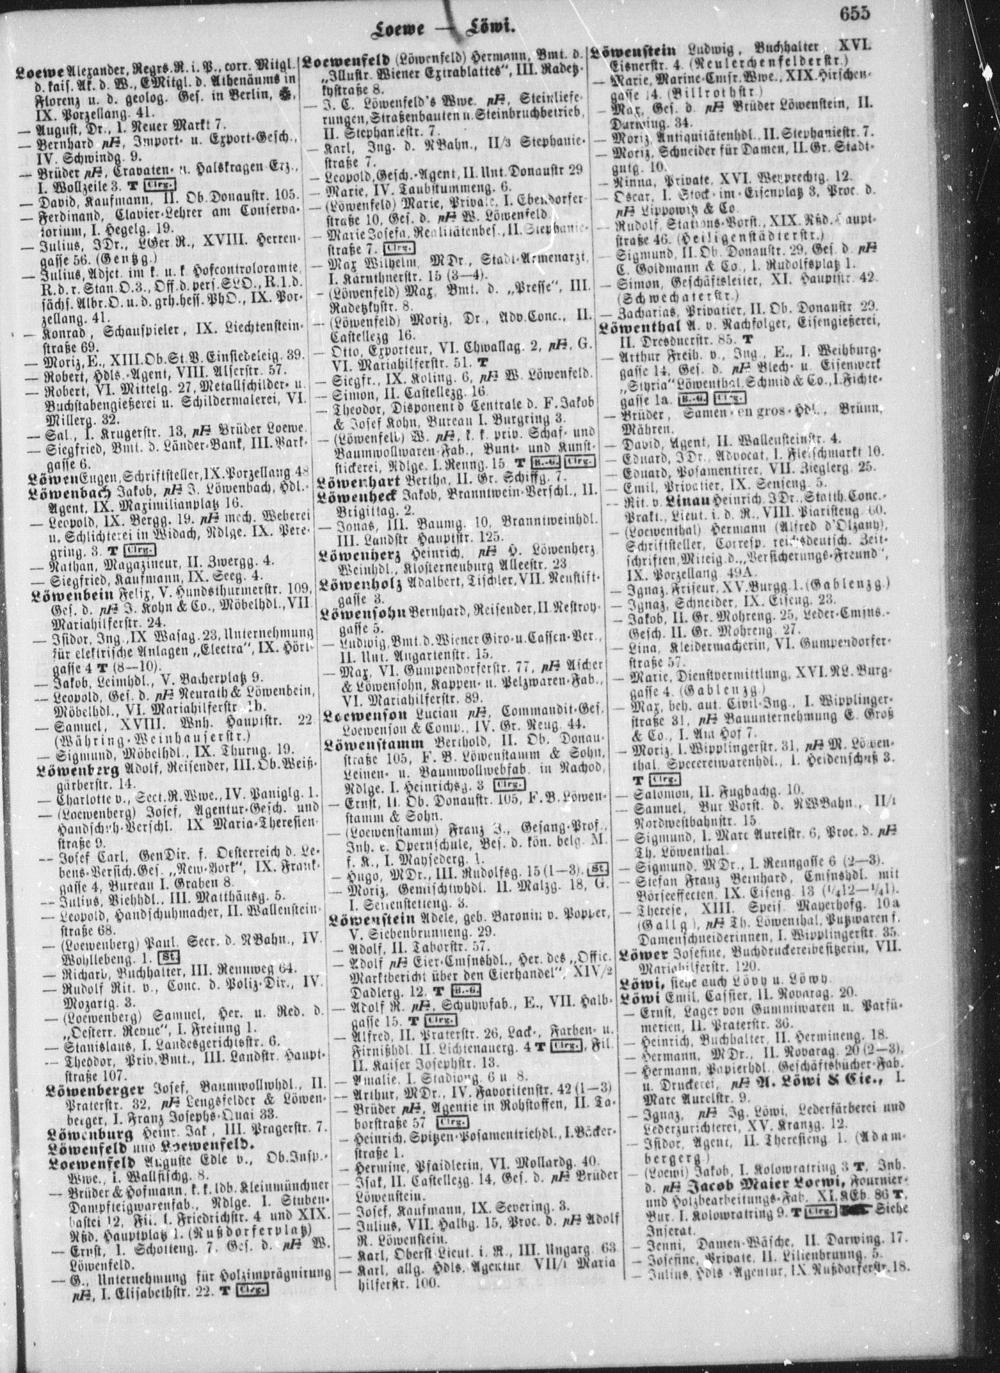 Loewe — Löwi.
655
Loewe Alexander, Regrs.R. i. P., corr. Mitgl.
d. kais. Ak. d. W., EMitgl. d. Athenäums in
Florenz u. d. geolog. Ges. in Berlin,
IX. Porzellang. 41.
— August, Dr., I. Neuer Markt 7.
— Bernhard, Import- u. Export-Gesch.,
IV. Schwindg. 9.
— Brüder, Cravaten- u. Halskragen-Erz.,
I. Wollzeile 3. T Clrg.
— David, Kaufmann, II. Ob. Donaustr. 105.
— Ferdinand, Clavier-Lehrer am Conserva-
torium, I. Hegelg. 19.
— Julius, JDr., LGer.R., XVIII. Herren-
gasse 56. (Gentzg.)
— Julius, Adjct. im k. u. k. Hofcontroloramte,
R.d.r. Stan.O.3., Off.d.pers.SLO., R.1.d.
sächs. Albr.O. u.d. grh.hess. PhO., IX. Por-
zellang. 41.
— Konrad, Schauspieler, IX. Liechtenstein-
straße 69.
— Moriz, E., XIII. Ob.St.V. Einsiedeleig. 39.
— Robert, Hdls.-Agent, VIII. Alserstr. 57.
— Robert, VI. Mittelg. 27, Metallschilder- u.
Buchstabengießerei u. Schildermalerei, VI.
Millerg. 32.
— Sal., I. Krugerstr. 13, Brüder Loewe.
— Siegfried, Bmt. d. Länder-Bank, III. Park-
gasse 6.
Löwen Eugen, Schriftsteller, IX. Porzellang. 48
Löwenbach Jakob, J. Löwenbach, Hdl.-
Agent, IX. Maximilianplatz 16.
— Leopold, IX. Bergg. 19. mech. Weberei
u. Schlichterei in Widach, Ndlge. IX. Pere-
gring. 3. T Clrg.
— Nathan, Magazineur, II. Zwergg. 4.
— Siegfried, Kaufmann, IX. Seeg. 4.
Löwenbein Felix, V. Hundsthurmerstr. 109,
Ges. d. J. Kohn & Co., Möbelhdl., VII.
Mariahilferstr. 24.
— Isidor, Ing., IX. Wasag. 23, Unternehmung
für elektrische Anlagen „Electra", IX. Hörl-
gasse 4 T (8—10).
— Jakob, Leimhdl., V. Bacherplatz 9.
— Leopold, Ges. d. Neurath & Löwenbein,
Möbelhdl., VI. Mariahilferstr. 1b.
— Samuel, XVIII. Wnh. Hauptstr. 22
(Währing-Weinhauserstr.)
— Sigmund, Möbelhdl., IX. Thurng. 19.
Löwenberg Adolf, Reisender, III. Ob. Weiß-
gärberstr. 14.
— Charlotte v., Sect.R.Wwe., IV. Paniglg. 1.
— (Loewenberg) Josef, Agentur-Gesch. und
Handschuh-Verschl. IX Maria-Theresien-
straße 9.
— Josef Carl, GenDir. f. Oesterreich d. Le-
bens-Versich.Ges. „New-York", IX. Frank-
gasse 4, Bureau I. Graben 8.
— Julius, Viehhdl., III. Matthäusg. 5.
— Leopold, Handschuhmacher, II. Wallenstein-
straße 68.
— (Loewenberg) Paul, Secr. d. NBahn., IV.
Wohllebeng. 1. St.
— Richard, Buchhalter, III. Rennweg 64.
— Rudolf Rit. v., Conc. d. Poliz-Dir., IV.
Mozartg. 3.
— (Loewenberg) Samuel, Her. u. Red. d.
„Oesterr. Revue", I. Freiung 1.
— Stanislaus, I. Landesgerichtsstr. 6.
— Theodor, Priv.Bmt., III. Landstr. Haupt-
straße 107.
Löwenberger Josef, Baumwollwhdl., II.
Praterstr. 32, Lengsfelder & Löwen-
berger, I. Franz Josephs-Quai 33.
Löwenburg Heinr. Jak., III. Pragerstr. 7.
Löwenfeld und Loewenfeld.
Loewenfeld Auguste Edle v., Ob.Insp.-
Wwe., I. Wallfischg. 8.
— Brüder & Hofmann, k. k. ldb. Kleinmünchner
Dampfteigwarenfab., Ndlge. I. Stuben-
bastei 12, Fil. I. Friedrichstr. 4 und XIX.
Rßd. Hauptplatz 1. (Nußdorferplatz)
— Ernst, I. Schotteng. 7. Ges. d. W.
Löwenfeld.
— G., Unternehmung für Holzimprägnirung
I. Elisabethstr. 22. T Clrg.
Loewenfeld (Löwenfeld) Hermann, Bmt. d.
„Illustr. Wiener Extrablattes", III. Radetz-
kystraße 8.
— J. C. Löwenfeld's Wwe., Steinliefe-
rungen, Straßenbauten u. Steinbruchbetrieb,
II. Stephaniestr. 7.
— Karl, Ing. d. NBahn., II/3 Stephanie-
straße 7.
— Leopold, Gesch.-Agent, II. Unt. Donaustr 29
— Marie, IV. Taubstummeng. 6.
— (Löwenfeld) Marie, Private, I. Ebendorfer-
straße 10, Ges. d. W. Löwenfeld.
— Marie Josefa, Realitätenbes., II. Stephanie-
straße 7. Clrg.
— Max Wilhelm, MDr., Stadt-Armenarzt,
I. Kärnthnerstr. 15 (3—4).
— (Löwenfeld) Max, Bmt. d. „Presse", III.
Radetzkystr. 8.
— (Löwenfeld) Moriz, Dr., Adv.Conc., II.
Castellezg 16.
— Otto, Exporteur, VI. Chwallag. 2, G.
VI. Mariahilferstr. 51. T
— Siegfr., IX. Koling. 6, W. Löwenfeld.
— Simon, II. Castellezg. 16.
— Theodor, Disponent d. Centrale d. F. Jakob
& Josef Kohn, Bureau I. Burgring 3.
— (Löwenfeld) W., k. k. priv. Schaf- und
Baumwollwaren-Fab., Bunt- und Kunst-
stickerei, Ndlge. I. Renng. 15 T B.-G. Clrg.
Löwenhart Bertha, II. Gr. Schiffg. 7.
Löwenheck Jakob, Branntwein-Verschl., II.
Brigittag. 2.
— Jonas, III. Baumg. 10, Branntweinhdl.
III. Landstr. Hauptstr. 125.
Löwenherz Heinrich, H. Löwenherz,
Weinhdl., Klosterneuburg Alleestr. 23.
Löwenholz Adalbert, Tischler, VII. Neustift-
gasse 3.
Löwensohn Bernhard, Reisender, II. Nestroy-
gasse 5.
— Ludwig, Bmt. d. Wiener Giro- u. Cassen-Ver.,
II. Unt. Augartenstr. 15.
— Max, VI. Gumpendorferstr. 77, Ascher
& Löwensohn, Kappen- u. Pelzwaren-Fab.,
VI. Mariahilferstr. 89.
Loewenson Lucian, Commandit-Ges.
Loewenson & Comp., IV. Gr. Neug. 44.
Löwenstamm Berthold, II. Ob. Donau-
straße 105, F. B. Löwenstamm & Sohn,
Leinen- u. Baumwollwebfab. in Nachod,
Ndlge. I. Heinrichsg. 3 Clrg.
— Ernst, II. Ob. Donaustr. 105, F. B. Löwen-
stamm & Sohn.
— (Loewenstamm) Franz J., Gesang-Prof.,
Inh. e. Opernschule, Bes. d. kön. belg. M.
f. K., I. Maysederg. 1.
— Hugo, MDr., III. Rudolfsg. 15 (1—3). St.
— Moriz, Gemischtwhdl. II. Malzg. 18, G.
I. Seitenstetteng. 3.
Löwenstein Adele, geb. Baronin v. Popper,
V. Siebenbrunneng. 29.
— Adolf, II. Taborstr. 57.
— Adolf Eier-Cmsnshdl., Her. des „Offic.
Marktbericht über den Eierhandel", XIV/2
Dadlerg. 12. T B.-G.
— Adolf R., Schuhwfab., E., VII. Halb-
gasse 15. T Clrg.
— Alfred, II. Praterstr. 26, Lack-, Farben- u.
Firnißhdl. II. Lichtenauerg. 4 T Clrg., Fil.
II. Kaiser Josephstr. 13.
— Amalie, I. Stadiong. 6 u. 8.
— Arthur, MDr., IV. Favoritenstr. 42 (1—3)
— Brüder, Agentie in Rohstoffen, II. Ta-
borstraße 57 Clrg.
— Heinrich, Spitzen-Posamentriehdl., I. Bäcker-
straße 1.
— Hermine, Pfaidlerin, VI. Mollardg. 40.
— Isak, II. Castellezg. 14, Ges. d. Brüder
Löwenstein.
— Josef, Kaufmann, IX. Severing. 3.
— Julius, VII. Halbg. 15, Proc. d. Adolf
R. Löwenstein.
— Karl, Oberst-Lieut. i. R., III. Ungarg. 63
— Karl, allg. Hdls. Agentur VII/1 Maria
hilferstr. 100.
Löwenstein Ludwig, Buchhalter, XVI.
Eisnerstr. 4. (Neulerchenfelderstr.)
— Marie, Marine-Cmsr.Wwe., XIX. Hirschen-
gasse 14. (Billrothstr.)
— Max, Ges. d. Brüder Löwenstein, II.
Darwing. 34.
— Moriz, Antiquitätenhdl., II. Stephaniestr. 7.
— Moriz, Schneider für Damen, II. Gr. Stadt-
gutg. 10.
— Ninna, Private, XVI. Weyprechtg. 12.
— Oscar, I. Stock-im-Eisenplatz 3, Proc. d.
Lippowitz & Co.
— Rudolf, Stations-Vorst., XIX. Nßd. Haupt-
straße 46. (Heiligenstädterstr.)
— Sigmund, II. Ob. Donaustr. 29, Ges. d.
C. Goldmann & Co., I. Rudolfsplatz 1.
— Simon, Geschäftsleiter, XI. Hauptstr. 42.
(Schwechaterstr.)
— Zacharias, Privatier, II. Ob. Donaustr. 29.
Löwenthal A. v. Nachfolger, Eisengießerei,
II. Dresdnerstr. 85. T
— Arthur Freih. v., Ing., E., I. Weihburg-
gasse 14, Ges. d. Blech- u. Eisenwerk
„Styria" Löwenthal, Schmid & Co., I. Fichte-
gasse 1a. B.-G. Clrg.
— Brüder, Samen-en gros-Hdl., Brünn,
Mähren.
— David, Agent, II. Wallensteinstr. 4.
— Eduard, JDr., Advocat, I. Fleischmarkt 10.
— Eduard, Posamentirer, VII. Zieglerg. 25.
— Emil, Privatier, IX. Senseng. 5.
— Rit. v. Linau Heinrich, JDr., Statth.Conc.-
Prakt., Lieut. i. d. R., VIII. Piaristeng. 60.
— (Loewenthal) Hermann (Alfred d'Olzany),
Schriftsteller, Corresp. reichsdeutsch. Zeit-
schriften, Miteig. d. „Versicherungs-Freund",
IX. Porzellang. 49A.
— Ignaz, Friseur, XV. Burgg. 1. (Gablenzg.)
— Ignaz, Schneider, IX. Eiseng. 23.
— Jakob, II. Gr. Mohreng. 25, Leder-Cmsns.-
Gesch. II. Gr. Mohreng. 27.
— Lina, Kleidermacherin, VI. Gumpendorfer-
straße 57.
— Marie, Dienstvermittlung, XVI. RL. Burg-
gasse 4. (Gablenzg.)
— Max, beh. aut. Civil-Ing., I. Wipplinger-
straße 31, Bauunternehmung E. Groß
& Co., I. Am Hof 7.
— Moriz, I. Wipplingerstr. 31, M. Löwen-
thal, Specereiwarenhdl., I. Heidenschuß 3.
T Clrg.
— Salomon, II. Fugbachg. 10.
— Samuel, Bur. Vorst. d. NWBahn., II/1
Nordwestbahnstr. 15.
— Sigmund, I. Marc Aurelstr. 6, Proc. d.
Th. Löwenthal.
— Sigmund, MDr., I. Renngasse 6 (2—3).
— Stefan Franz Bernhard, Cmsnshdl. mit
Börseeffecten, IX. Eiseng. 13 (¼12—¼1).
— Therese, XIII. Speis. Mayerhofg. 10a
(Gallg.), Th. Löwenthal, Putzwaren f.
Damenschneiderinnen, I. Wipplingerstr. 35.
Löwer Josefine, Buchdruckereibesitzerin, VII.
Mariahilferstr. 120.
Löwi, siehe auch Lövy u. Löwy.
Löwi Emil, Cassier, II. Novarag. 20.
— Ernst, Lager von Gummiwaren u. Parfü-
merien, II. Praterstr. 36.
— Heinrich, Buchhalter, II. Hermineng. 18.
— Hermann, MDr., II. Novarag. 20 (2—3).
— Hermann, Papierhdl., Geschäftsbücher-Fab.
u. Druckerei, A. Löwi & Cie., I.
Marc Aurelstr. 9.
— Ignaz, Ig. Löwi, Lederfärberei und
Lederzurichterei, XV. Kranzg. 12.
— Isidor, Agent, II. Theresieng. 1. (Adam-
bergerg.)
— (Loewi) Jakob, I. Kolowratring 3 T. Inh.
d. Jacob Maier Loewi, Fournier-
und Holzbearbeitungs-Fab. XI. KEb. 86 T,
Bur. I. Kolowratring 9. T Clrg. Siehe
Inserat.
— Jenni, Damen-Wäsche, II. Darwing. 17.
— Josefine, Private, II. Lilienbrunng. 5.
— Julius, Hdls.-Agentur, IX. Nußdorferstr. 18.